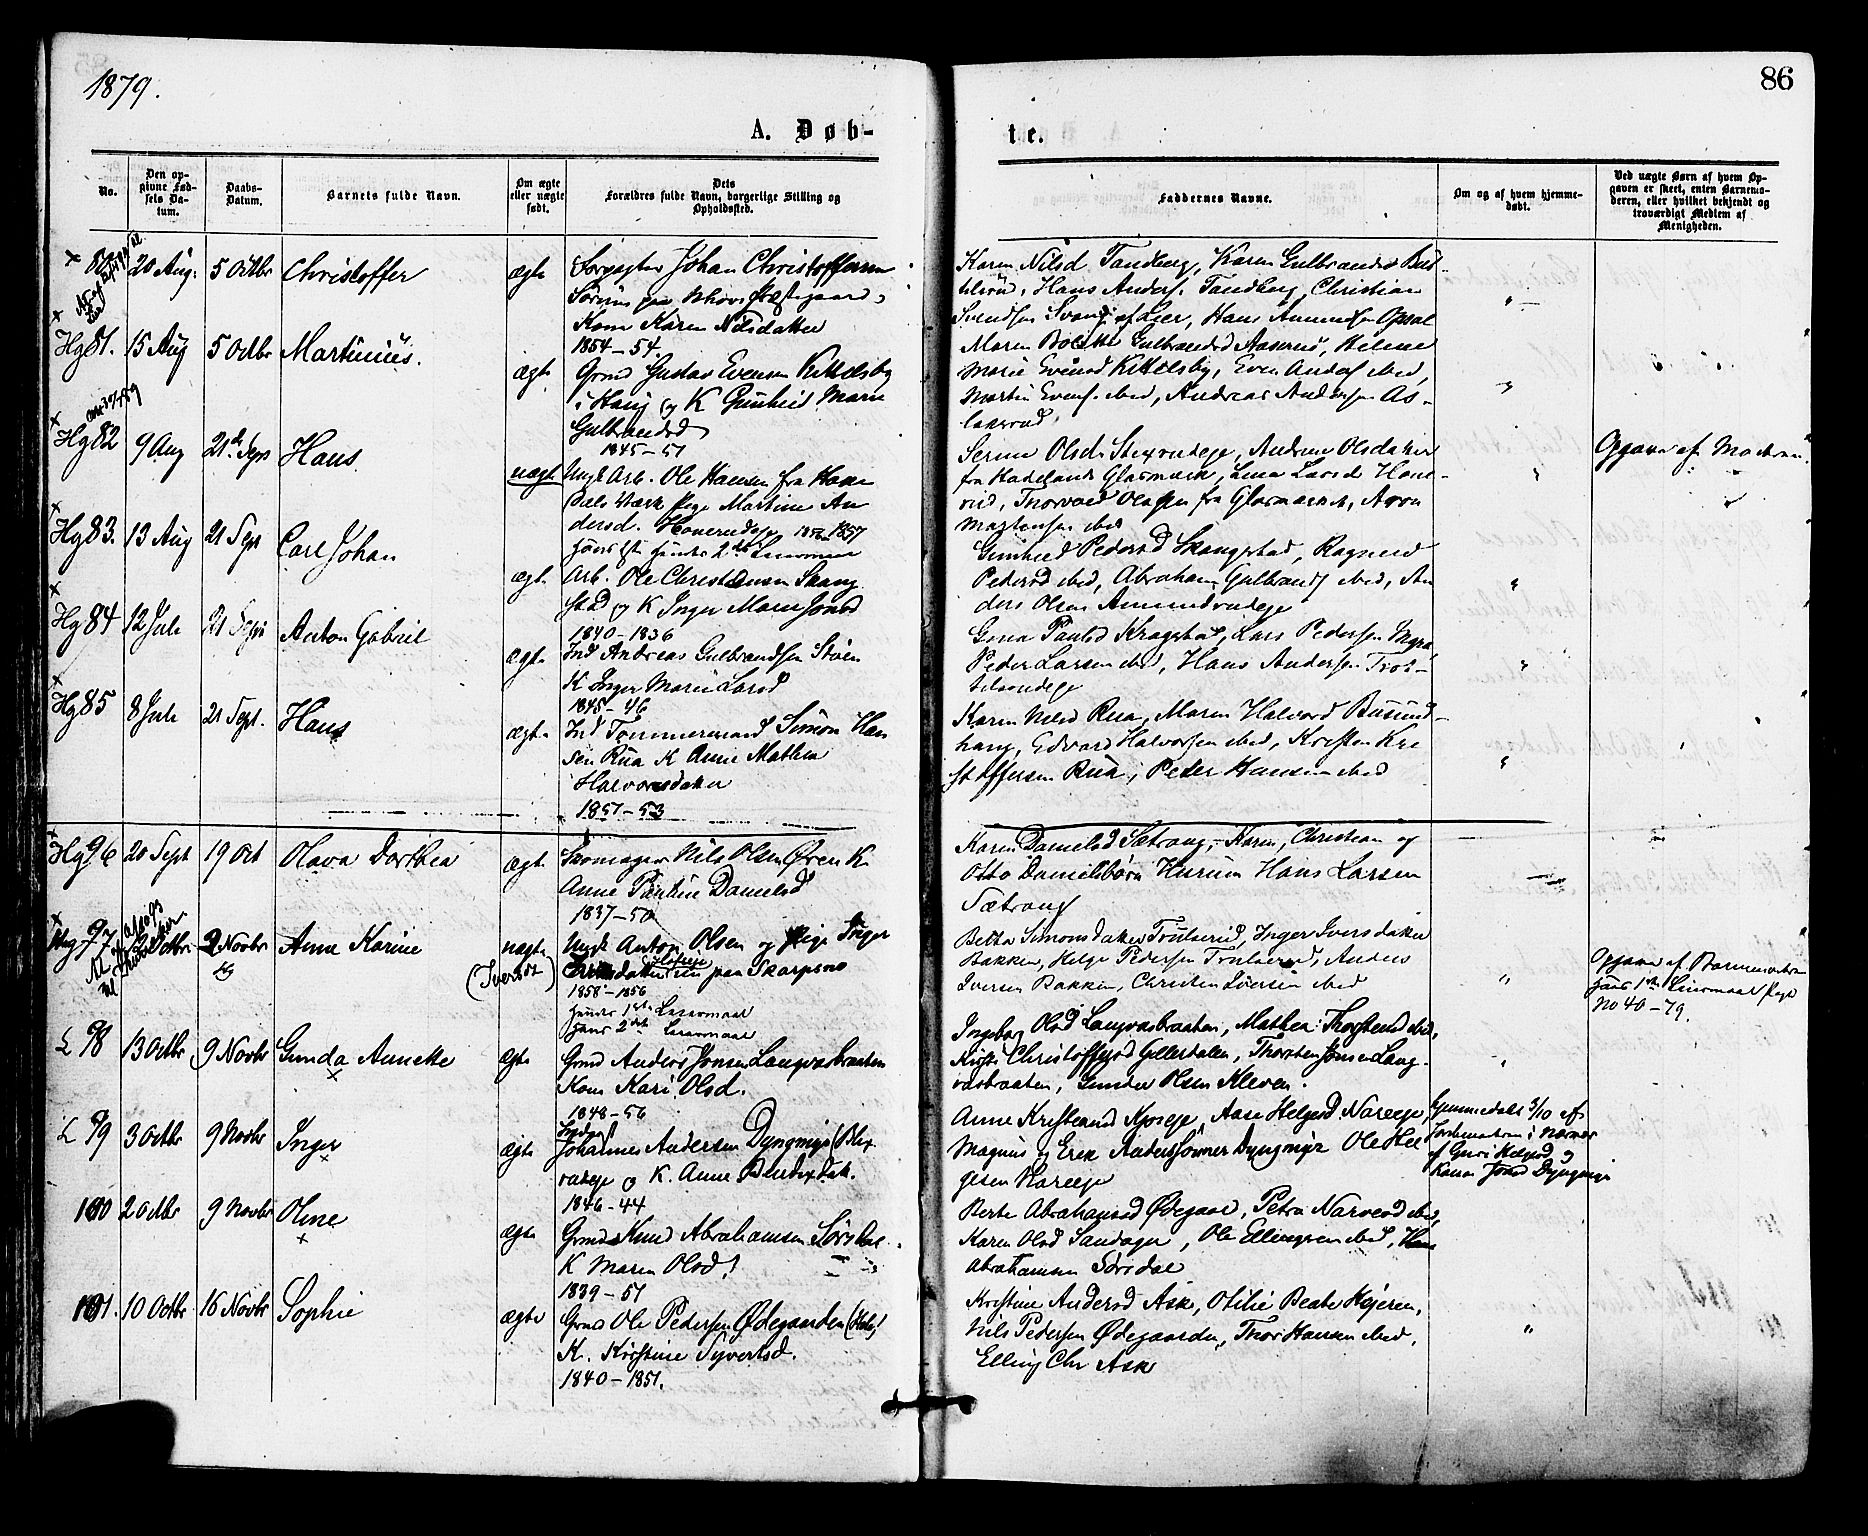 1879.
86
A. Døb-
te.
No.
Den op-
givne Fød-
sels Da-
tum.
Daabs-
Datum.
Barnets fulde Navn.
Om ægte
eller uægte
født.
Dets
Forældres fulde Navn, borgerlige Stilling og
Opholdssted.
Faddernes Navne.
Om og af hvem hjemme-
døbt.
Ved uægte Børn af hvem Op-
gaven er skeet, enten Barnemo-
deren, eller hvilket bekjendt og
troværdigt Medlem af
Menigheden.
20 Aug. 5 Octbr Christoffer ægte Johan Christoffersen
Kone Karen Nilsdatter
1854-54.
Karen Nilsd Tandberg, Karen Gulbrandsd
Hans Anders. Tandberg, Christian
Svendsen af Lier, Hans Amundsen Opsal
Hg 81. 15 Aug 5 Octbr Martinius. ægte Grmd Gustav Evensen Kittelsby
i Haug og K Gunhild Marie
Gulbrandsd
1845-51
Maren Gulbrandsd Aaserud, Helene
Marie Evensd Kittelsby, Even Anders ibed,
Martin Evens. ibed, Andreas Andersen As-
laksrud
Hg 82 9 Aug 21de Sept Hans uægte Ungk Arb. Ole Hansen fra
Værk Pige Martine An
dersd. 1857
Hans 1ste Hendes 2det Leiermaal
Olsd. Andrine Olsdatter
fra Hadelands Glasværk, Lina Larsd
Thorvald Olsen fra Glasværket,
ibed
Opgave af Moderen
Hg 83. 13 Aug 21 Sept Carl Johan ægte Arb. Ole Christensen Skang
stad og K Inger Marie Jonsd
1840-1836
Gunhild Pedersd Skangstad, Ragnild
Pedersd ibed, Abraham Gulbrands ibed, An
ders Olsen Amundrudeje
Hg 84 12 Juli 21 Sept Anton Gabriel ægte Ind Andreas Gulbrandsen Støen
K Inger Marie Larsd
1845-46
Paulsd Lars Pedersen
Peder Larsen ibed, Hans Andersen
Hg 85 8 Juli 21 Sept. Hans ægte Ind Tømmermand Simon Han
sen Rua K Anne Mathea
Halvorsdatter
1851-53
Karen Nilsd Rua, Maren Halvorsd Busund-
haug, Edvard Halvorsen ibed, Kristen Kri
stoffersen Rua, Peder Hansen ibed
Hg 96 20 Sept 19 Oct Olava Dorthea ægte Skomager Nils Olsen Øren K
Anne Pauline Danielsd
1837-50
Karen Danielsd Sætrang, Karen, Christian og
Otto Danielsbørn Hurum Hans Larsen
Sætrang
Hg 97 Octbr 2 Novbr Anne Karine uægte (Iversdt) Ungk Anton Olsen og Pige Inger
paa Skarpsno
1858-1856
Hendes 1ste Leiermaal
Hans 2det Leiermaal
Simonsdatter Trulserud, Inger Iversdatter
Bakken, Helge Pedersen Trulserud, Anders
Iversen Bakken, Christen Iversen ibed
Opgave af Barnemoderen
Hans 1ste Leiermaal
No 40-79.
L 98 13 Octbr 9 Novbr Gunda Annette ægte Grmd Anders Jonsen Langvasbraaten
Kone Kari Olsd.
1848-56
Ingeborg Olsd Langvasbraaten, Mathea Thorstensd ibed,
Kirsti Christoffersd Thorsten Jonsen Lang-
vasbraaten, Gunder Olsen Kleven.
L 99 3 Octbr 9 Novbr Inger ægte Johannes Andersen Dyngmyr
og K. Anne
1846-44
Anne Kristiansd Aase Helgesd Nareeje,
Magnus og Erik Anderssønner Dyngmyr Ole Hel
gesen Nareeje
Hjemmedøbt 3/10 af
af Guri Helgesd
Kone Jonsd Dyngmyr
100 2 Octbr 9 Novbr Oline ægte Grmd Knud Abrahamsen Sørsdal
K Maren Olsd!
1839-51
Berte Abrahamsd Ødegaard, Petra Narvesd ibed,
Karen Olsd Sandager, Ole Ellingsen ibed, Hans
Abrahamsen Sørsdal
101. 10 Octbr 16 Novbr Sophie ægte Grmd Ole Pedersen Ødegaarden (Hole)
K. Kirstine Syvertsd.
1840-1851.
Kristine Andersd Ask, Otilie Beate
Nils Pedersen Ødegaarden, Thor Hansen ibed,
Elling Chr Ask